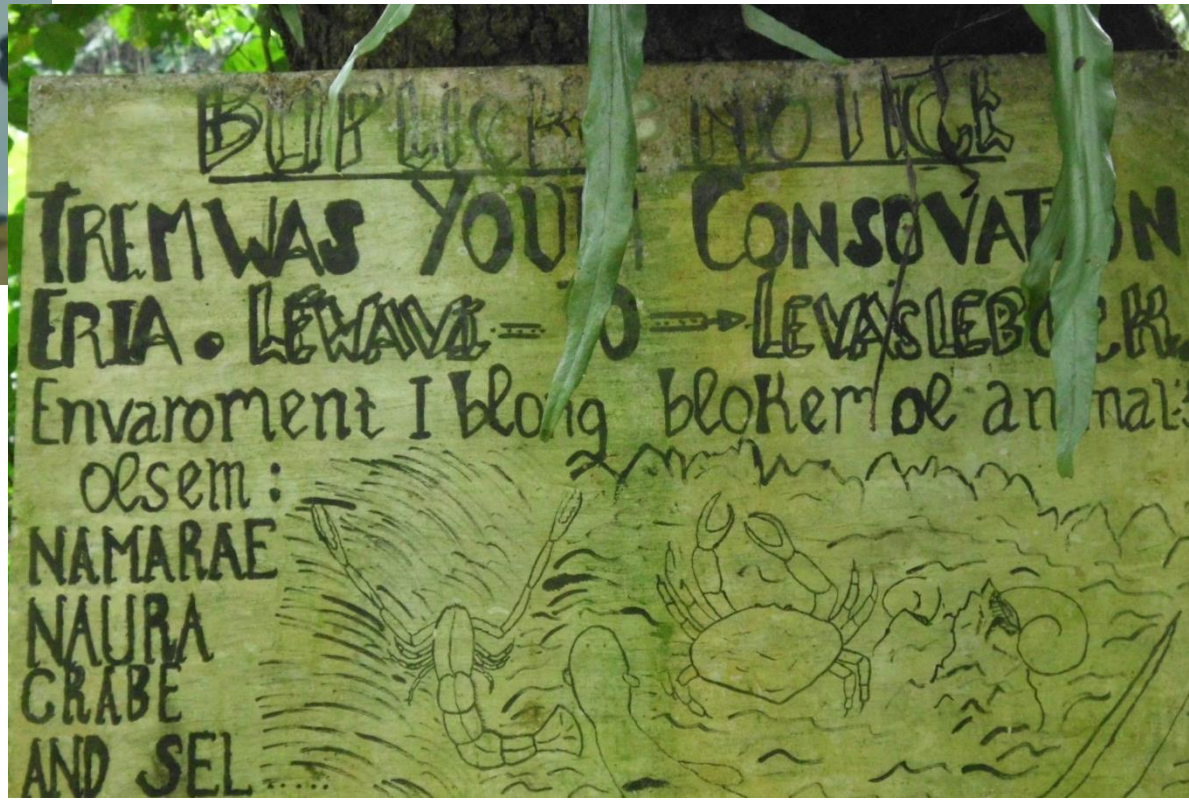 BUPLICK NOTICE
TREMWAS YOUTH CONSOVATION
ERIA. LEWAWI = TO → LEVASLEBUCK.
Envaroment I blong bloKem ol animals
olsem :
NAMARAE
NAURA
CRABE
AND SEL.....